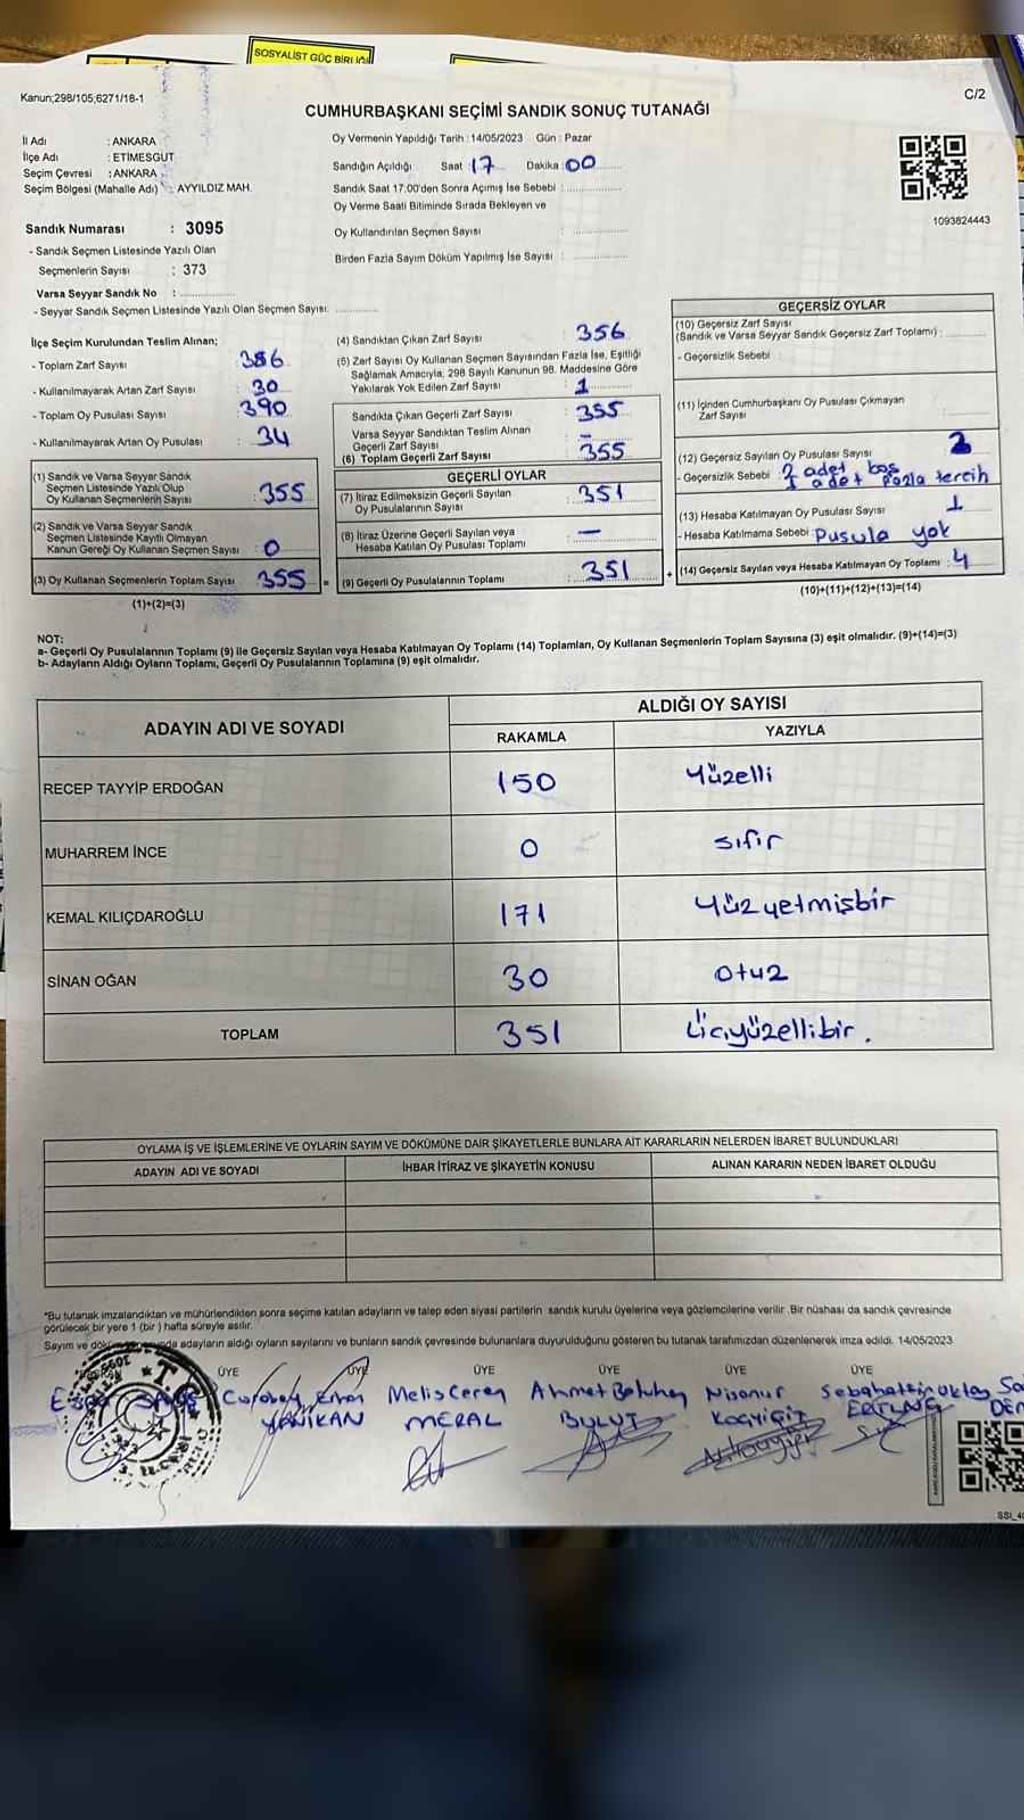 SOSYALİST GÜÇ BİRLİĞİ
Kanun;298/105;6271/18-1
C/2
CUMHURBAŞKANI SEÇİMİ SANDIK SONUÇ TUTANAĞI
İl Adı : ANKARA
İlçe Adı : ETİMESGUT
Seçim Çevresi : ANKARA
Seçim Bölgesi (Mahalle Adı) : AYYILDIZ MAH.
Oy Vermenin Yapıldığı Tarih : 14/05/2023 Gün : Pazar
Sandığın Açıldığı Saat 17 Dakika 00
Sandık Saat 17:00'den Sonra Açımış İse Sebebi :
Oy Verme Saati Bitiminde Sırada Bekleyen ve
Oy Kullandırılan Seçmen Sayısı :
Birden Fazla Sayım Döküm Yapılmış İse Sayısı :
1093824443
Sandık Numarası : 3095
- Sandık Seçmen Listesinde Yazılı Olan
Seçmenlerin Sayısı : 373
Varsa Seyyar Sandık No :
- Seyyar Sandık Seçmen Listesinde Yazılı Olan Seçmen Sayısı:
İlçe Seçim Kurulundan Teslim Alınan;
- Toplam Zarf Sayısı : 386
- Kullanılmayarak Artan Zarf Sayısı : 30
- Toplam Oy Pusulası Sayısı : 390
- Kullanılmayarak Artan Oy Pusulası : 34
(1) Sandık ve Varsa Seyyar Sandık
Seçmen Listesinde Yazılı Olup
Oy Kullanan Seçmenlerin Sayısı : 355
(2) Sandık ve Varsa Seyyar Sandık
Seçmen Listesinde Kayıtlı Olmayan
Kanun Gereği Oy Kullanan Seçmen Sayısı : 0
(3) Oy Kullanan Seçmenlerin Toplam Sayısı : 355 =
(1)+(2)=(3)
(4) Sandıktan Çıkan Zarf Sayısı : 356
(5) Zarf Sayısı Oy Kullanan Seçmen Sayısından Fazla İse, Eşitliği
Sağlamak Amacıyla, 298 Sayılı Kanunun 98. Maddesine Göre
Yakılarak Yok Edilen Zarf Sayısı : 1
Sandıkta Çıkan Geçerli Zarf Sayısı : 355
Varsa Seyyar Sandıktan Teslim Alınan
Geçerli Zarf Sayısı : -
(6) Toplam Geçerli Zarf Sayısı : 355
GEÇERLİ OYLAR
(7) İtiraz Edilmeksizin Geçerli Sayılan
Oy Pusulalarının Sayısı : 351
(8) İtiraz Üzerine Geçerli Sayılan veya
Hesaba Katılan Oy Pusulası Toplamı : —
(9) Geçerli Oy Pusulalarının Toplamı : 351 +
GEÇERSİZ OYLAR
(10) Geçersiz Zarf Sayısı
(Sandık ve Varsa Seyyar Sandık Geçersiz Zarf Toplamı) :
- Geçersizlik Sebebi :
(11) İçinden Cumhurbaşkanı Oy Pusulası Çıkmayan
Zarf Sayısı :
(12) Geçersiz Sayılan Oy Pusulası Sayısı : 3
- Geçersizlik Sebebi : 2 adet boş
1 adet fazla tercih
(13) Hesaba Katılmayan Oy Pusulası Sayısı : 1
- Hesaba Katılmama Sebebi : Pusula yok
(14) Geçersiz Sayılan veya Hesaba Katılmayan Oy Toplamı : 4
(10)+(11)+(12)+(13)=(14)
NOT:
a- Geçerli Oy Pusulalarının Toplamı (9) ile Geçersiz Sayılan veya Hesaba Katılmayan Oy Toplamı (14) Toplamları, Oy Kullanan Seçmenlerin Toplam Sayısına (3) eşit olmalıdır. (9)+(14)=(3)
b- Adayların Aldığı Oyların Toplamı, Geçerli Oy Pusulalarının Toplamına (9) eşit olmalıdır.
ADAYIN ADI VE SOYADI
ALDIĞI OY SAYISI
RAKAMLA YAZIYLA
RECEP TAYYİP ERDOĞAN 150 Yüzelli
MUHARREM İNCE 0 sıfır
KEMAL KILIÇDAROĞLU 171 Yüzyetmişbir
SİNAN OĞAN 30 Otuz
TOPLAM 351 Üçyüzellibir.
OYLAMA İŞ VE İŞLEMLERİNE VE OYLARIN SAYIM VE DÖKÜMÜNE DAİR ŞİKAYETLERLE BUNLARA AİT KARARLARIN NELERDEN İBARET BULUNDUKLARI
ADAYIN ADI VE SOYADI İHBAR İTİRAZ VE ŞİKAYETİN KONUSU ALINAN KARARIN NEDEN İBARET OLDUĞU
*Bu tutanak imzalandıktan ve mühürlendikten sonra seçime katılan adayların ve talep eden siyasi partilerin sandık kurulu üyelerine veya gözlemcilerine verilir. Bir nüshası da sandık çevresinde
görülecek bir yere 1 (bir) hafta süreyle asılır.
Sayım ve adayların aldığı oyların sayılarını ve bunların sandık çevresinde bulunanlara duyurulduğunu gösteren bu tutanak tarafımızdan düzenlenerek imza edildi. 14/05/2023
ÜYE ÜYE ÜYE ÜYE ÜYE ÜYE
Melis Ceren Ahmet Batuhan Nisanur Sebahattin Oktay
YANIKAN MERAL BULUT KOÇYİĞİT ERTUNÇ